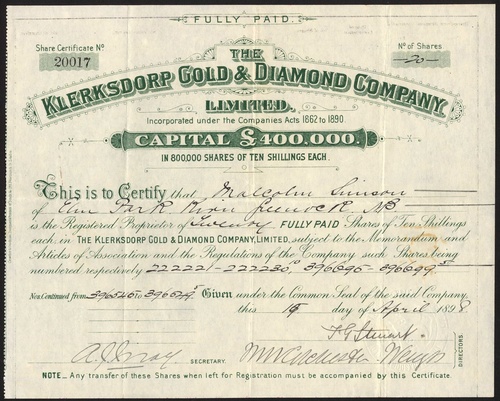 FULLY PAID.
Share Certificate No
20017
No of Shares
-20-
THE
KLERKSDORP GOLD & DIAMOND COMPANY
LIMITED.
Incorporated under the Companies Acts 1862 to 1890
CAPITAL £400,000.
IN 800,000 SHARES OF TEN SHILLINGS EACH.
This is to Certify that Malcolm
of Elm Park NB
is the Registered Proprietor of Twenty FULLY PAID Shares of Ten Shillings
each, in THE KLERKSDORP GOLD & DIAMOND COMPANY, LIMITED, subject to the Memorandum and
Articles of Association and the Regulations of the Company such Shares being
numbered respectively 222221-222230, 396695-396699
Nos. Continued from 396545 to 396549 Given under the Common Seal of the said Company
this day of April 1898
F G Stewart
SECRETARY.
DIRECTORS.
NOTE... Any transfer of these Shares when left for Registration must be accompanied by this Certificate.